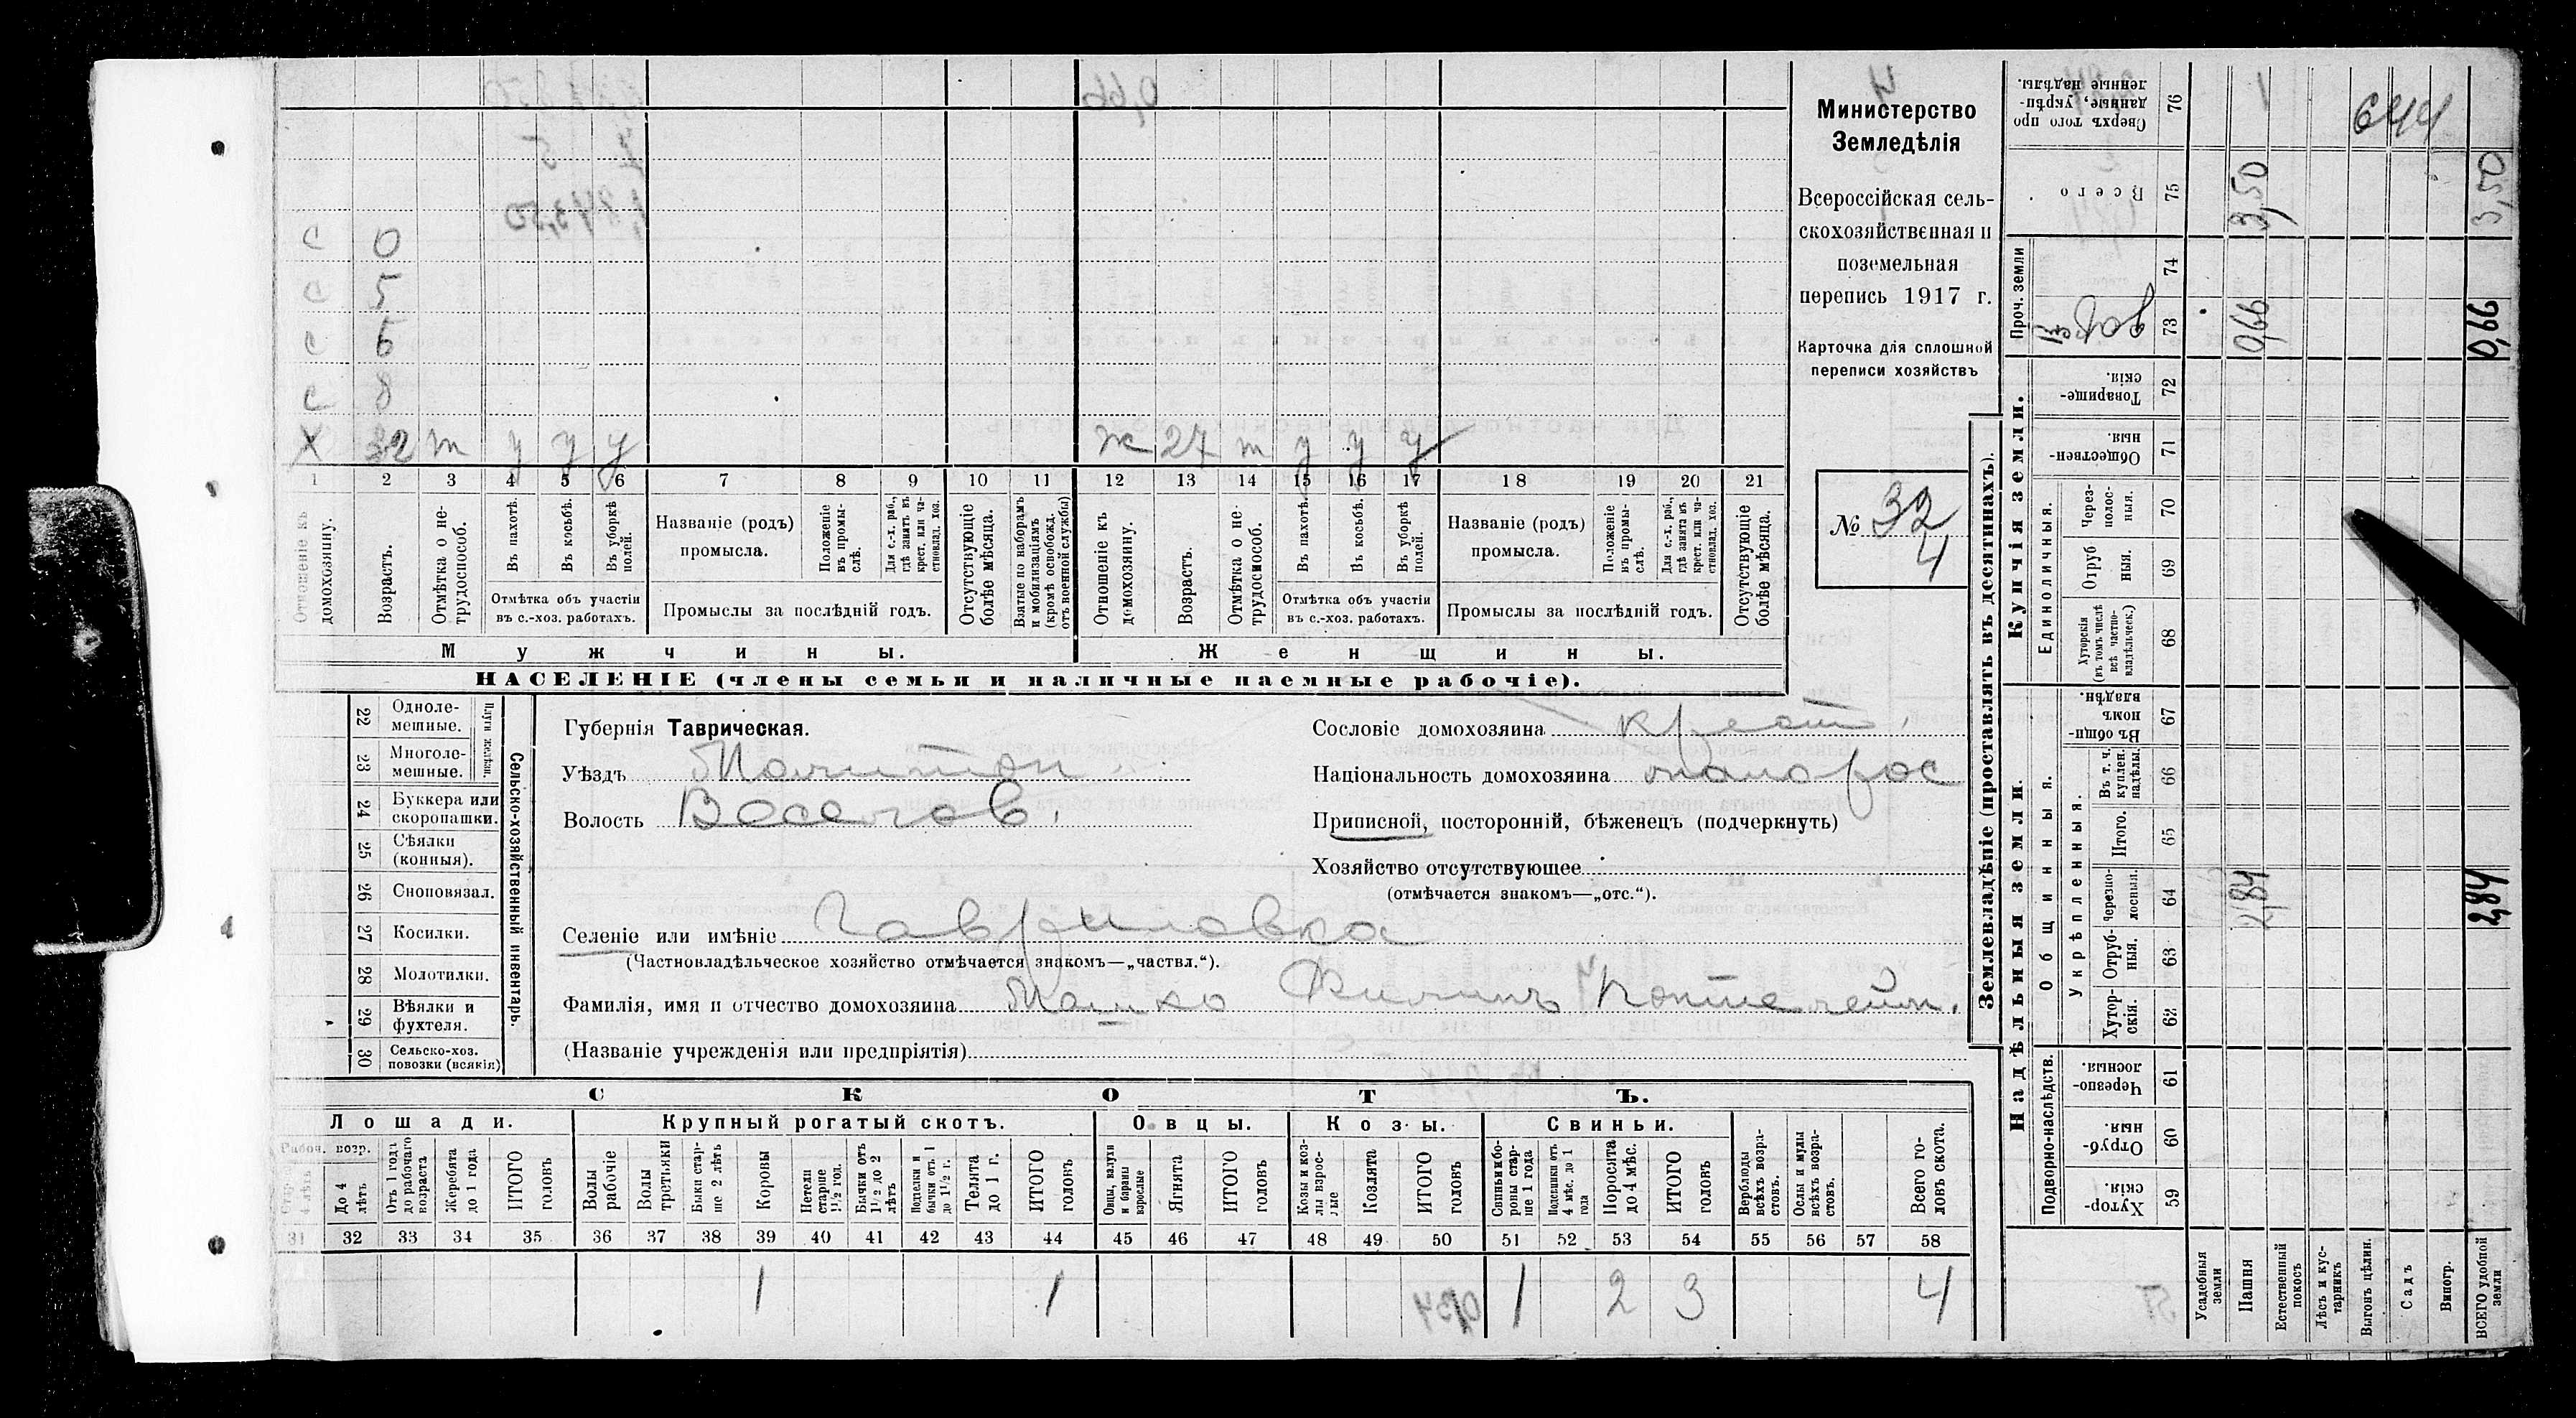 Министерство
Земледѣлія
Всероссійская сель-
скохозяйственная и
поземельная
перепись 1917 г.
Карточка для сплошной
переписи хозяйствъ
№ 32
4
с 0
с 5
с 6
с 8
х 32 т у у у ж 27 т у у у
1 2 3 4 5 6 7 8 9 10 11 12 13 14 15 16 17 18 19 20 21
Отношеніе къ домохозяину.
Возрастъ.
Отмѣтка о не-трудоспособ.
Въ пахотѣ.
Въ косьбѣ.
Въ уборкѣ полей.
Отмѣтка объ участіи
въ с.-хоз. работахъ.
Названіе (родъ)
промысла.
Положеніе въ промы-слѣ.
Для с.-х. раб., гдѣ занятъ въ крест. или ча-стновлад. хоз.
Промыслы за послѣдній годъ.
Отсутствующіе болѣе мѣсяца.
Взятые по наборамъ и мобилизаціямъ (кромѣ освобожд. отъ военной службы)
Отношеніе къ домохозяину.
Возрастъ.
Отмѣтка о не-трудоспособ.
Въ пахотѣ.
Въ косьбѣ.
Въ уборкѣ полей.
Отмѣтка объ участіи
въ с.-хоз. работахъ.
Названіе (родъ)
промысла.
Положеніе въ промы-слѣ.
Для с.-х. раб., гдѣ занята въ крест. или ча-стновлад. хоз.
Промыслы за послѣдній годъ.
Отсутствующіе болѣе мѣсяца.
Мужчины. Женщины.
НАСЕЛЕНІЕ (члены семьи и наличные наемные рабочіе).
Сельско-хозяйственный инвентарь.
Плуги желѣзн.
22 Одноле-мешные.
23 Многоле-мешные.
24 Буккера или скоропашки.
25 Сѣялки (конныя).
26 Сноповязал.
27 Косилки.
28 Молотилки.
29 Вѣялки и фухтеля.
30 Сельско-хоз. повозки (всякія)
Губернія Таврическая.
Уѣздъ Мелитоп
Волость Веселов.
Селеніе или имѣніе Гавриловка
(Частновладѣльческое хозяйство отмѣчается знакомъ—„частвл.“).
Фамилія, имя и отчество домохозяина Машко Филипъ Пантелейм.
(Названіе учрежденія или предпріятія)
Сословіе домохозяина крест.
Національность домохозяина малорос
Приписной, посторонній, бѣженецъ (подчеркнуть)
Хозяйство отсутствующее
(отмѣчается знакомъ—„отс.“).
СКОТЪ.
Лошади. Крупный рогатый скотъ. Овцы. Козы. Свиньи.
Рабоч. возр.
До 4 лѣтъ
Отъ 1 года до рабочаго возраста
Жеребята до 1 года
ИТОГО головъ
Волы рабочіе
Волы третьяки
Быки стар-ше 2 лѣтъ
Коровы
Нетели старше 1½ год.
Бычки отъ 1½ до 2 лѣтъ
Подтелки и бычки отъ 1 до 1½ г.
Телята до 1 г.
ИТОГО головъ
Овцы, валухи и бараны взрослые
Ягнята
ИТОГО головъ
Козы и коз-лы взрос-лые
Козлята
ИТОГО головъ
Свиньи и бо-ровы стар-ше 1 года
Подсвинки отъ 4 мѣс. до 1 года
Поросята до 4 мѣс.
ИТОГО головъ
Верблюды всѣхъ возра-стовъ.
Ослы и мулы всѣхъ возра-стовъ.
Всего го-ловъ скота.
31 32 33 34 35 36 37 38 39 40 41 42 43 44 45 46 47 48 49 50 51 52 53 54 55 56 57 58
1 1 1 2 3 4
Землевладѣніе (проставлять въ десятинахъ).
Надѣльныя земли. Купчія земли. Проч. земли
Подворно-наслѣдств.
Общинныя.
Укрѣпленныя.
Единоличныя.
59 Хутор-скія.
60 Отруб-ныя.
61 Черезпо-лосныя.
62 Хутор-скія.
63 Отруб-ныя.
64 Черезпо-лосныя.
65 Итого.
66 Въ т. ч. куплен. надѣлы
67 Въ общи-номъ владѣн.
68 Хуторскія (въ томъ числѣ всѣ частно-владѣльческ.)
69 Отруб ныя.
70 Через-полос-ныя.
71 Обществен-ныя.
72 Товарище-скія.
73
74
75 Всего
76 Сверхъ того про данные, укрѣп-ленные надѣлы.
Усадебныя земли
Пашня 2,84 0,66 3,50
Естественный покосъ
Лѣсъ и кус-тарникъ
Выгонъ цѣлин.
Садъ
Виногр.
ВСЕГО удобной земли 2,84 0,66 3,50
644